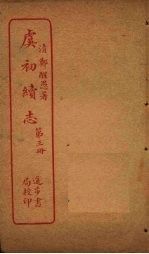 清鄭醒愚著
虞初續志
第三冊
進步書局校印